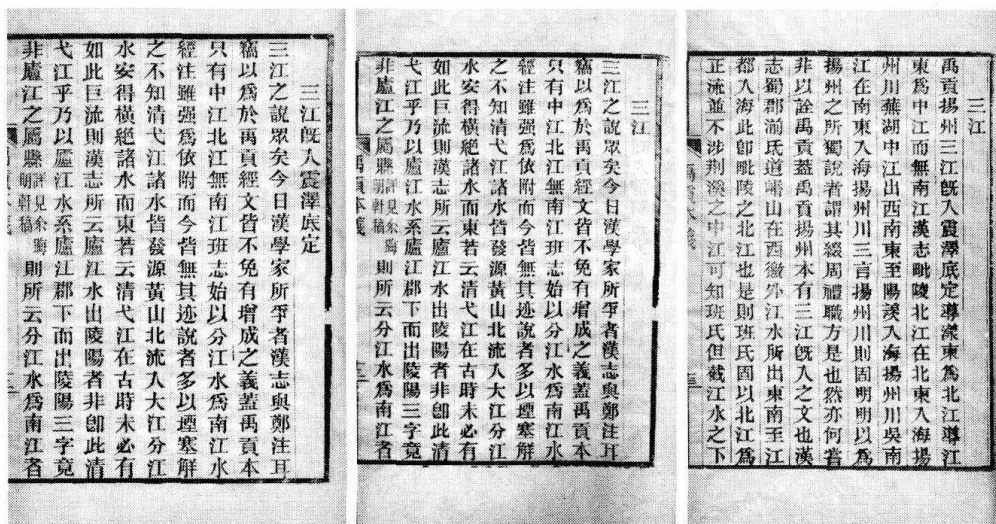 三江
禹貢揚州三江旣入震澤底定導漾東爲北江導江
東爲中江而無南江漢志毗陵北江在北東入海揚
州川蕪湖中江出西南東至陽羨入海揚州川吳南
江在南東入海揚州川三言揚州川則固明明以爲
揚州之所獨說者謂其綴周禮職方是也然亦何嘗
非以詮禹貢蓋禹貢揚州本有三江旣入之文也漢
志蜀郡湔氐道㟭山在西徼外江水所出東南至江
都入海此卽毗陵之北江也是則班氏固以北江爲
正流並不涉荆溪之中江可知班氏但截江水之下
三江
三江之說眾矣今日漢學家所爭者漢志與鄭注耳
竊以爲於禹貢經文皆不免有增成之義蓋禹貢本
只有中江北江無南江班志始以分江水爲南江水
經注雖强爲依附而今皆無其迹說者多以堙塞解
之不知清弋江諸水皆發源黃山北流入大江分江
水安得橫絕諸水而東若云清弋江在古時未必有
如此巨流則漢志所云廬江水出陵陽者非卽此清
弋江乎乃以廬江水系廬江郡下而出陵陽三字竟
非廬江之屬縣詳見余晦明軒稿則所云分江水爲南江者
禹貢本義
三江旣入震澤底定
三江之說眾矣今日漢學家所爭者漢志與鄭注耳
竊以爲於禹貢經文皆不免有增成之義蓋禹貢本
只有中江北江無南江班志始以分江水爲南江水
經注雖强爲依附而今皆無其迹說者多以堙塞解
之不知清弋江諸水皆發源黃山北流入大江分江
水安得橫絕諸水而東若云清弋江在古時未必有
如此巨流則漢志所云廬江水出陵陽者非卽此清
弋江乎乃以廬江水系廬江郡下而出陵陽三字竟
非廬江之屬縣詳見余晦明軒稿則所云分江水爲南江者